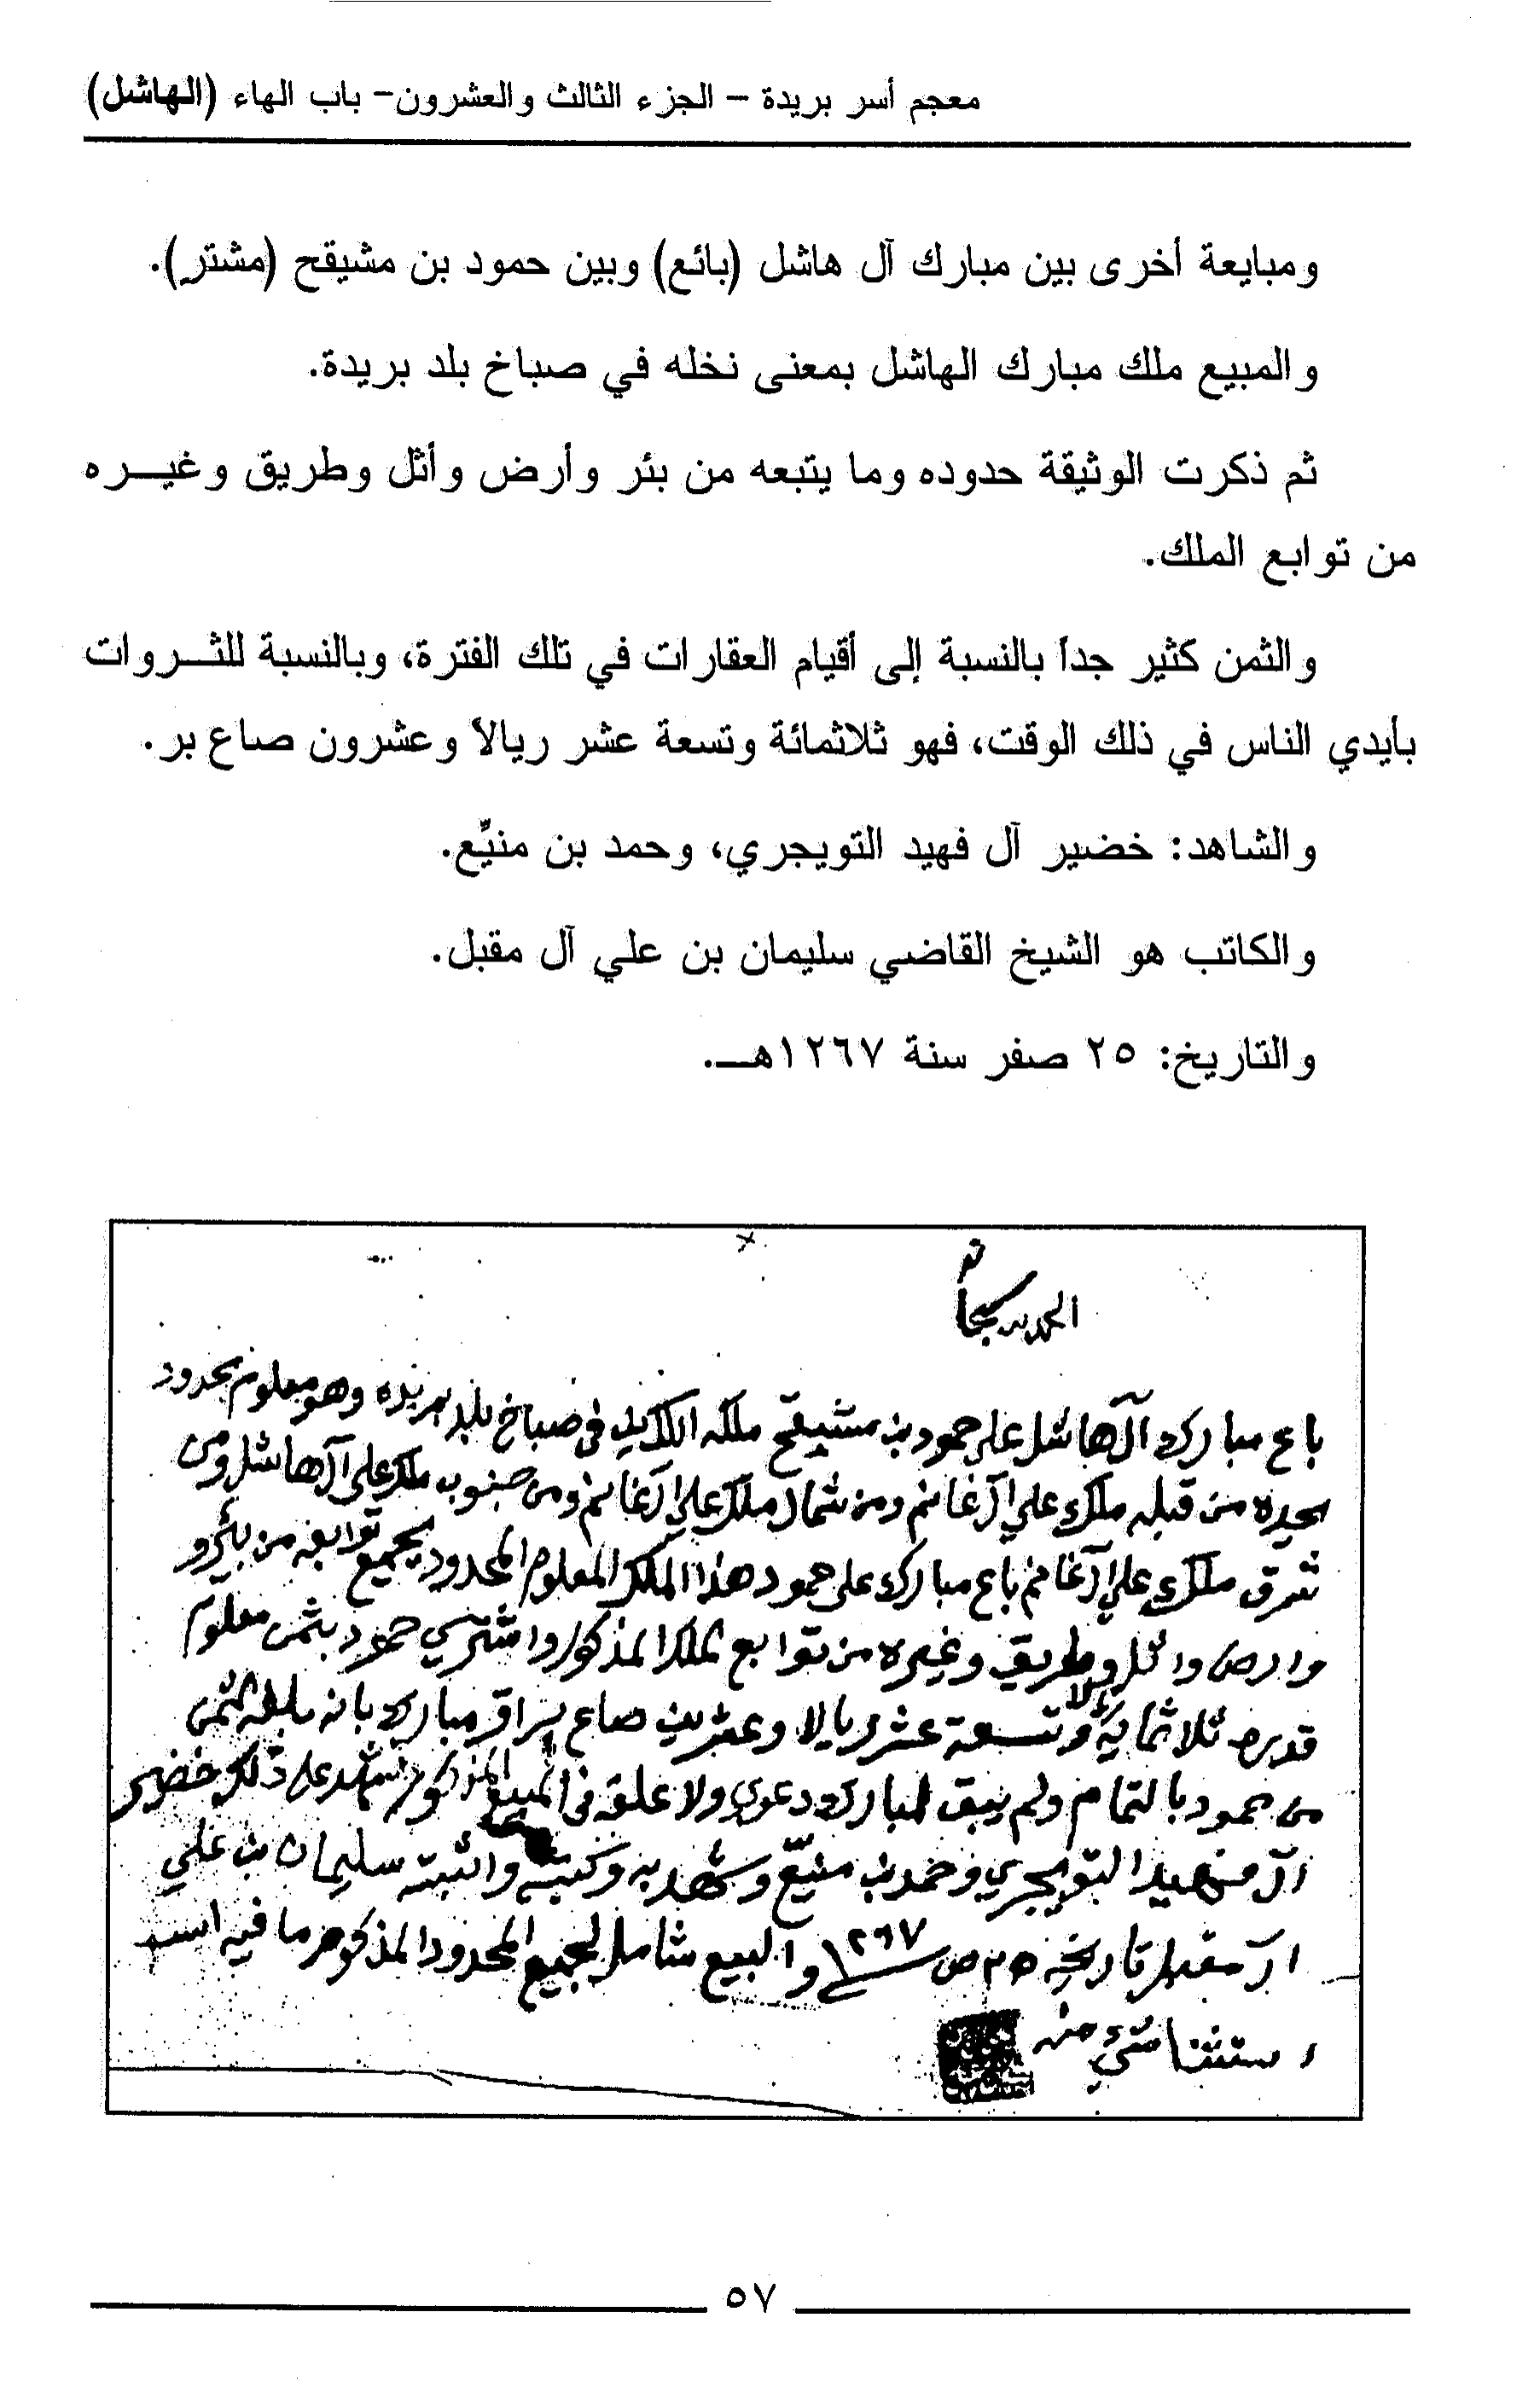 معجم أسر بريدة – الجزء الثالث والعشرون– باب الهاء (الهاشل)
ومبايعة أخرى بين مبارك آل هاشل (بائع) وبين حمود بن مشيقح (مشتر).
والمبيع ملك مبارك الهاشل بمعنى نخله في صباخ بلد بريدة.
ثم ذكرت الوثيقة حدوده وما يتبعه من بئر وأرض وأثل وطريق وغيـــره
من توابع الملك.
والثمن كثير جداً بالنسبة إلى أقيام العقارات في تلك الفترة، وبالنسبة للثـــروات
بأيدي الناس في ذلك الوقت، فهو ثلاثمائة وتسعة عشر ريالاً وعشرون صاع بر.
والشاهد: خضير آل فهيد التويجري، وحمد بن منيِّع.
والكاتب هو الشيخ القاضي سليمان بن علي آل مقبل.
والتاريخ: ٢٥ صفر سنة ١٢٦٧هـــ.
الحمد لله سبحانه
باع مبارك آل هاشل على حمود بن مشيقح ملكه الكاين في صباخ بلد بريده وهو معلوم بحدود
يحده من قبله ملك علي آل غانم ومن شمال ملك علي آل غانم ومن جنوب ملك علي آل هاشل ومن
شرق ملك علي آل غانم باع مبارك على حمود هذا الملك المعلوم المحدود بجميع توابعه من بئر و
وارض واثل وطريق وغيره من توابع الملك المذكور واشترى حمود بثمن معلوم
قدره ثلاثماية وتسعة عشر ريالا وعشرين صاع بر اقر مبارك بانه بلغه الثمن
من حمود بالتمام ولم يبق لمبارك دعوى ولا علقة في المبيع المذكور شهد على ذلك خضير
آل فهيد التويجري وحمد بن منيّع وشهد به وكتبه واثبته سليمان بن علي
آل مقبل تاريخه ٢٥ ص ١٢٦٧ والبيع شامل لجميع المحدود المذكور ما فيه
استثنا شيء منه
٥٧